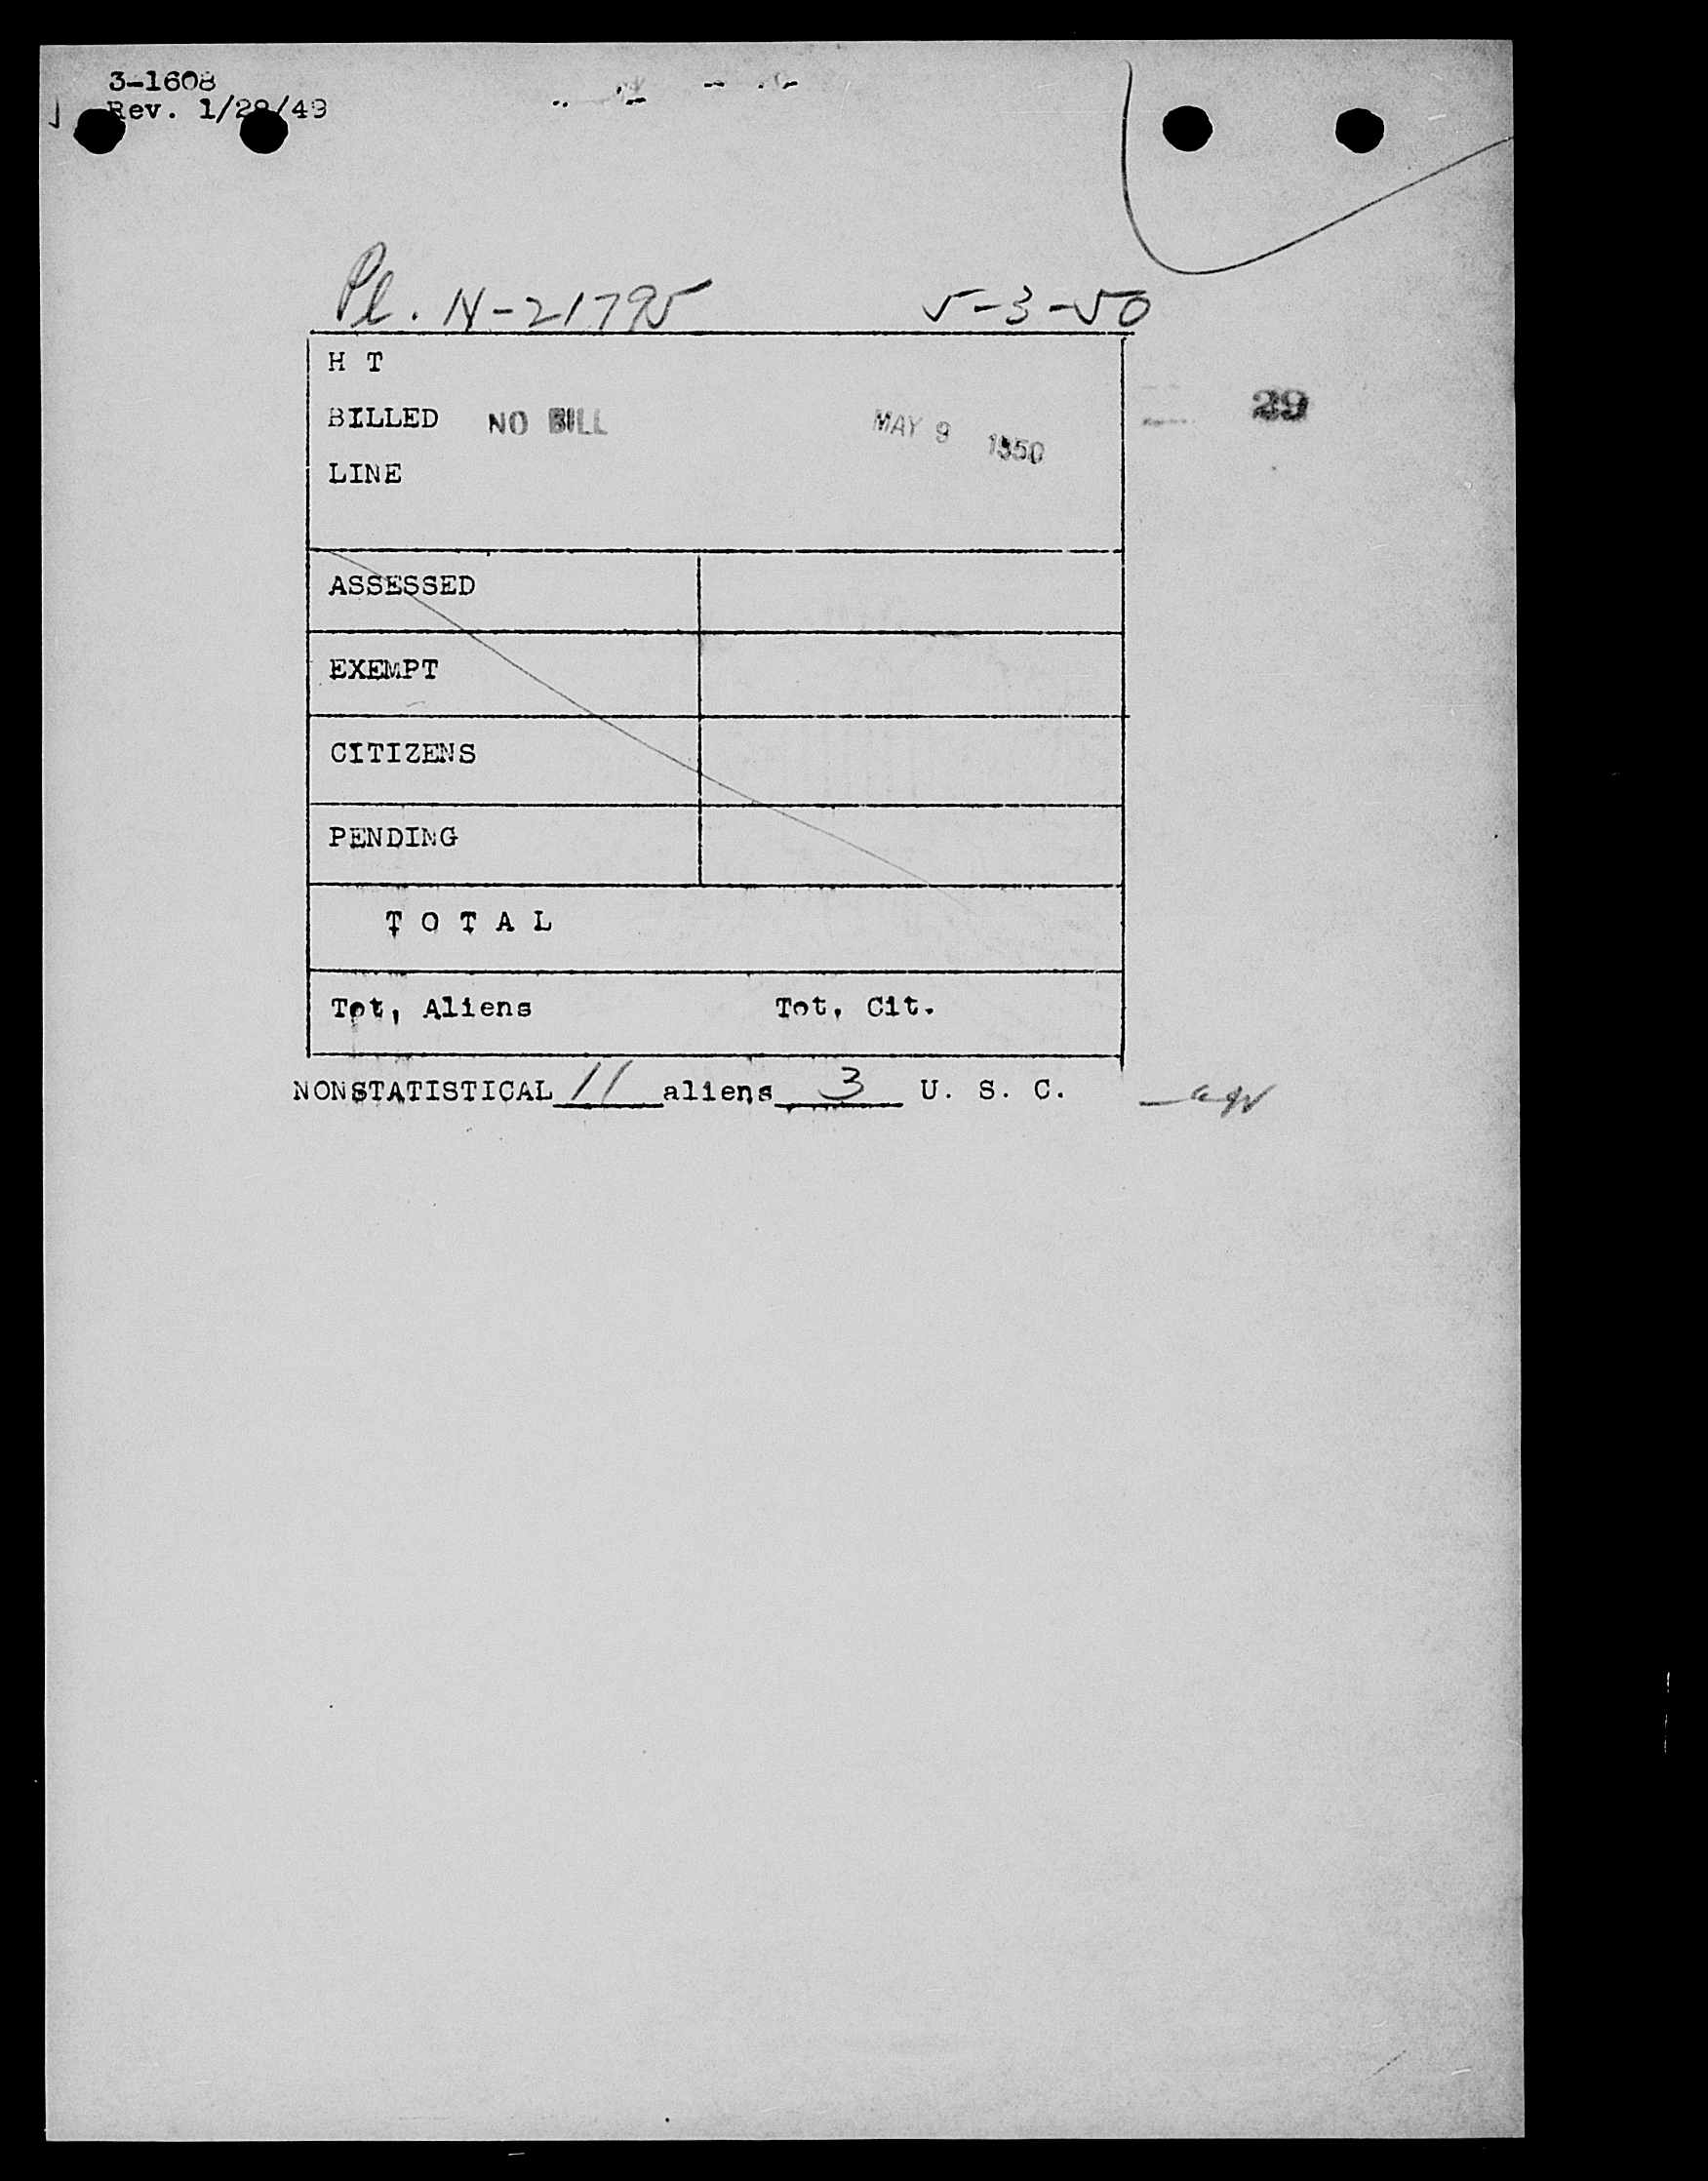 3-1608
Rev. 1/28/49
Pl. N-21795 5-3-50
H T
BILLED NO BILL MAY 9 1950
29
LINE
ASSESSED
EXEMPT
CITIZENS
PENDING
T O T A L
Tot, Aliens Tot, Cit.
NONSTATISTICAL 11 aliens 3 U. S. C.